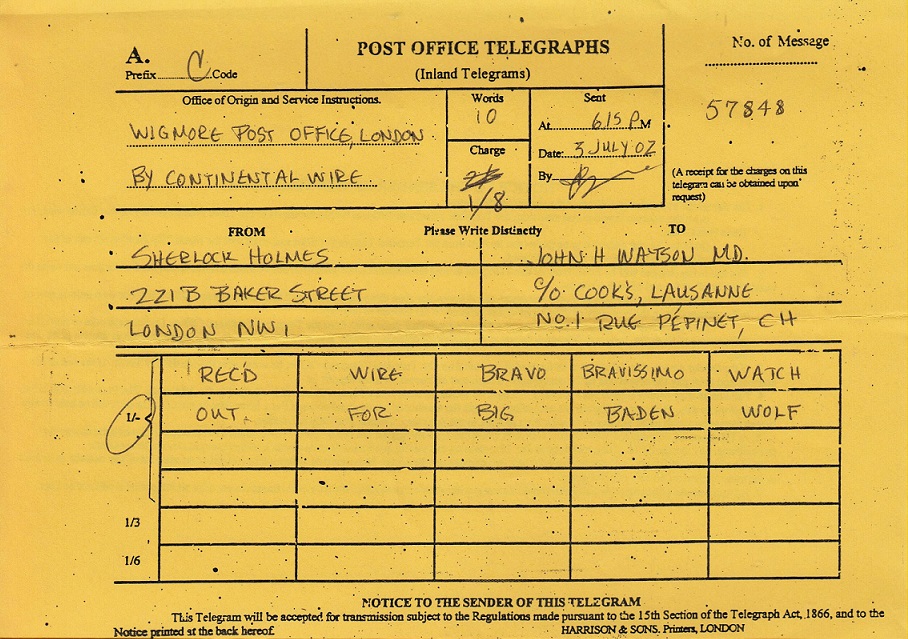 A.
Prefix C Code
POST OFFICE TELEGRAPHS
(Inland Telegrams)
No. of Message
57848
Office of Origin and Service Instructions.
WIGMORE POST OFFICE, LONDON
BY CONTINENTAL WIRE
Words
10
Charge
1/8
Sent
At 615 PM
Date: 3 JULY 02
By
(A receipt for the charges on this
telegram can be obtained upon
request)
FROM
Please Write Distinctly
TO
SHERLOCK HOLMES
JOHN H WATSON MD.
221B BAKER STREET
C/O COOK'S, LAUSANNE
LONDON NW1
NO.1 RUE PÉPINET, CH
REC'D WIRE BRAVO BRAVISSIMO WATCH
1/- OUT. FOR BIG BADEN WOLF
1/3
1/6
NOTICE TO THE SENDER OF THIS TELEGRAM
This Telegram will be accepted for transmission subject to the Regulations made pursuant to the 15th Section of the Telegraph Act, 1866, and to the
Notice printed at the back hereof.
HARRISON & SONS. Printers, LONDON